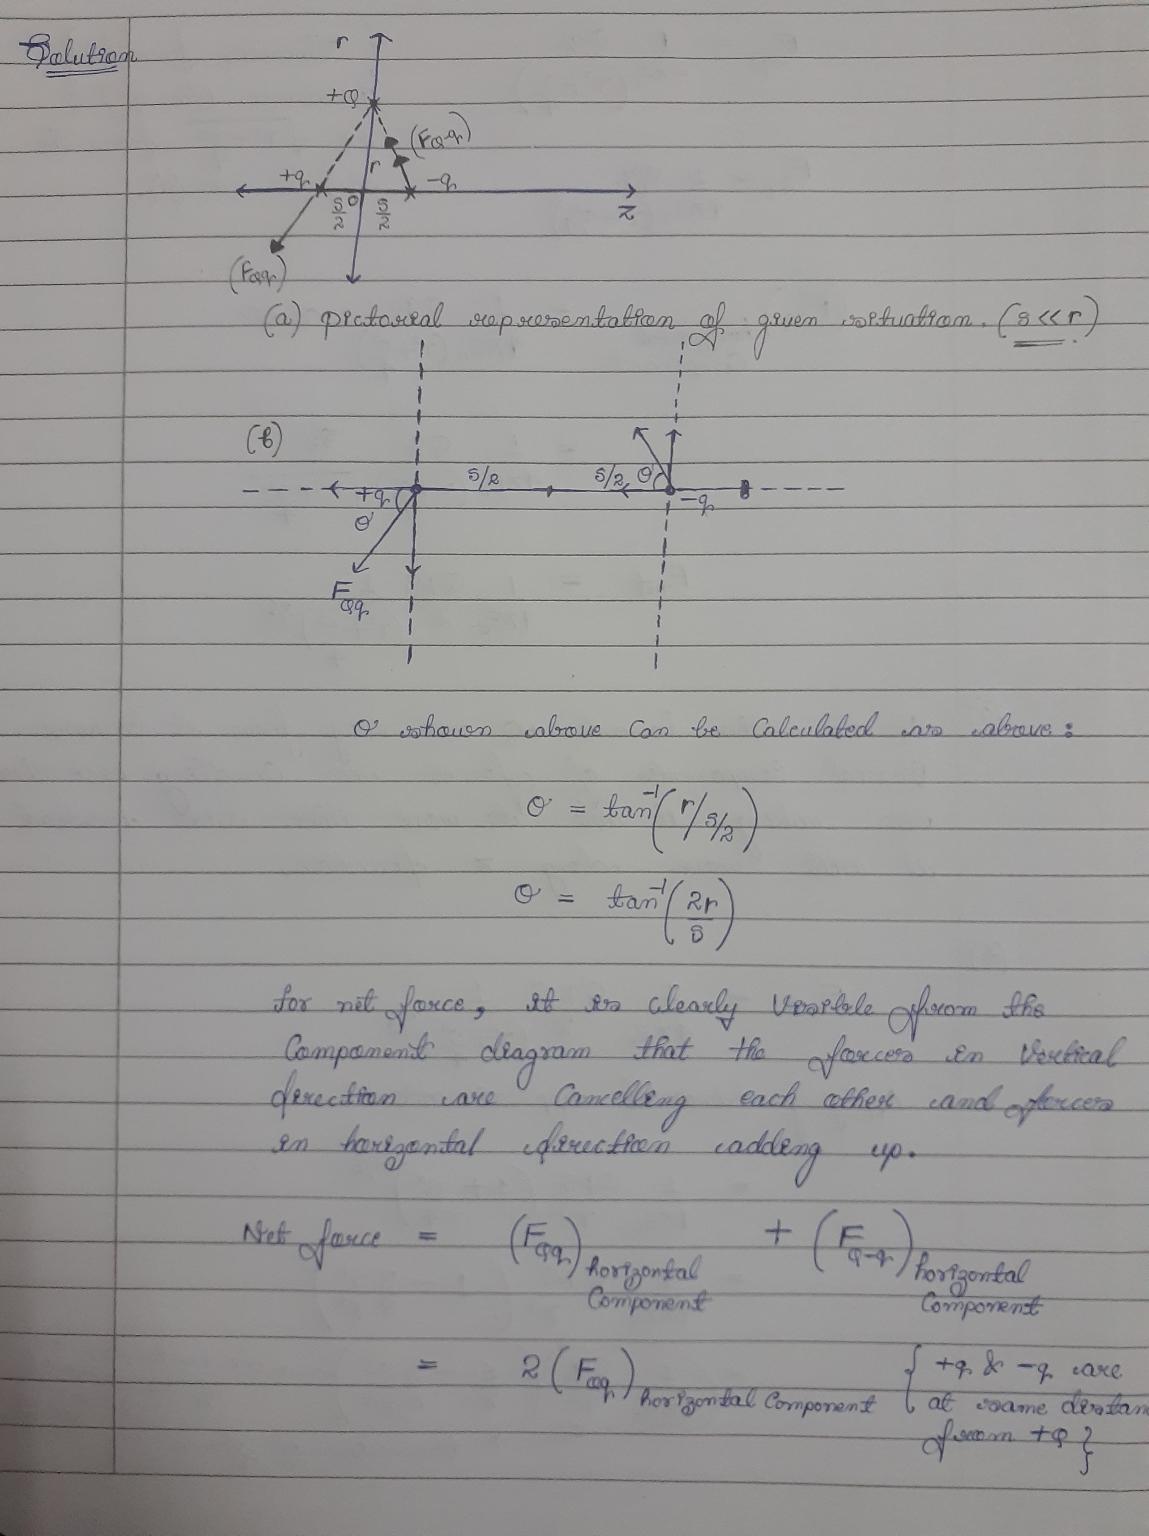 Solution
r
+Q
(FQ-q)
r
+q
-q
S/2
O
S/2
z
(FQq)
(a) pictorial representation of given situation. (s<<r)
(b)
S/2
S/2
θ
+q
-q
θ
FQq
θ shown above can be calculated as above:
θ = tan⁻¹(r/s/2)
θ = tan⁻¹(2r/s)
for net force, it is clearly visible from the
component diagram that the forces in vertical
direction are cancelling each other and forces
in horizontal direction adding up.
Net force = (FQq) horizontal component + (FQ-q) horizontal component
= 2(FQq) horizontal component {+q & -q are
at same distan
from +Q}